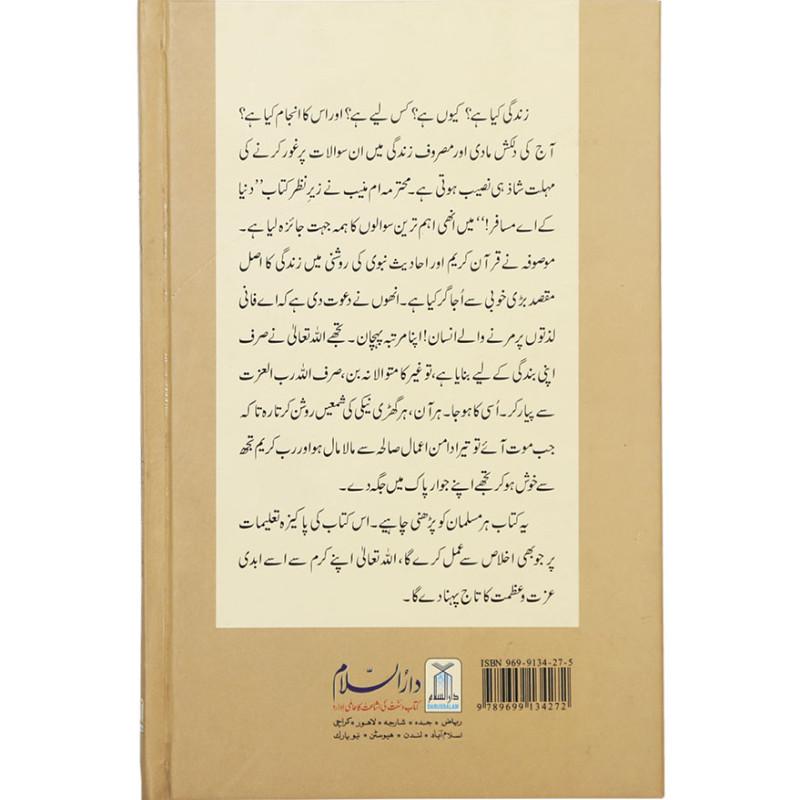 زندگی کیا ہے؟ کیوں ہے؟ کس لیے ہے؟ اور اس کا انجام کیا ہے؟
آج کی دلکش مادی اور مصروف زندگی میں ان سوالات پر غور کرنے کی
مہلت شاذ ہی نصیب ہوتی ہے۔ محترمہ ام منیب نے زیرِ نظر کتاب ”دنیا
کے اے مسافر!“ میں انھی اہم ترین سوالوں کا ہمہ جہت جائزہ لیا ہے۔
موصوفہ نے قرآن کریم اور احادیث نبوی کی روشنی میں زندگی کا اصل
مقصد بڑی خوبی سے اُجاگر کیا ہے۔ انھوں نے دعوت دی ہے کہ اے فانی
لذتوں پر مرنے والے انسان! اپنا مرتبہ پہچان۔ تجھے اللہ تعالیٰ نے صرف
اپنی بندگی کے لیے بنایا ہے، تو غیر کا متوالا نہ بن، صرف اللہ رب العزت
سے پیار کر۔ اُسی کا ہو جا۔ ہر آن، ہر گھڑی نیکی کی شمعیں روشن کرتا رہ تا کہ
جب موت آئے تو تیرا دامن اعمال صالحہ سے مالا مال ہو اور رب کریم تجھ
سے خوش ہو کر تجھے اپنے جوار پاک میں جگہ دے۔
یہ کتاب ہر مسلمان کو پڑھنی چاہیے۔ اس کتاب کی پاکیزہ تعلیمات
پر جو بھی اخلاص سے عمل کرے گا، اللہ تعالیٰ اپنے کرم سے اسے ابدی
عزت و عظمت کا تاج پہنا دے گا۔
ISBN 969-9134-27-5
9 789699 134272
دارالسلام
DARUSSALAM
دارُالسّلام
کتاب و سنّت کی اشاعت کا عالمی ادارہ
ریاض • جدہ • شارجہ • لاہور • کراچی
اسلام آباد • لندن • ہیوسٹن • نیو یارک